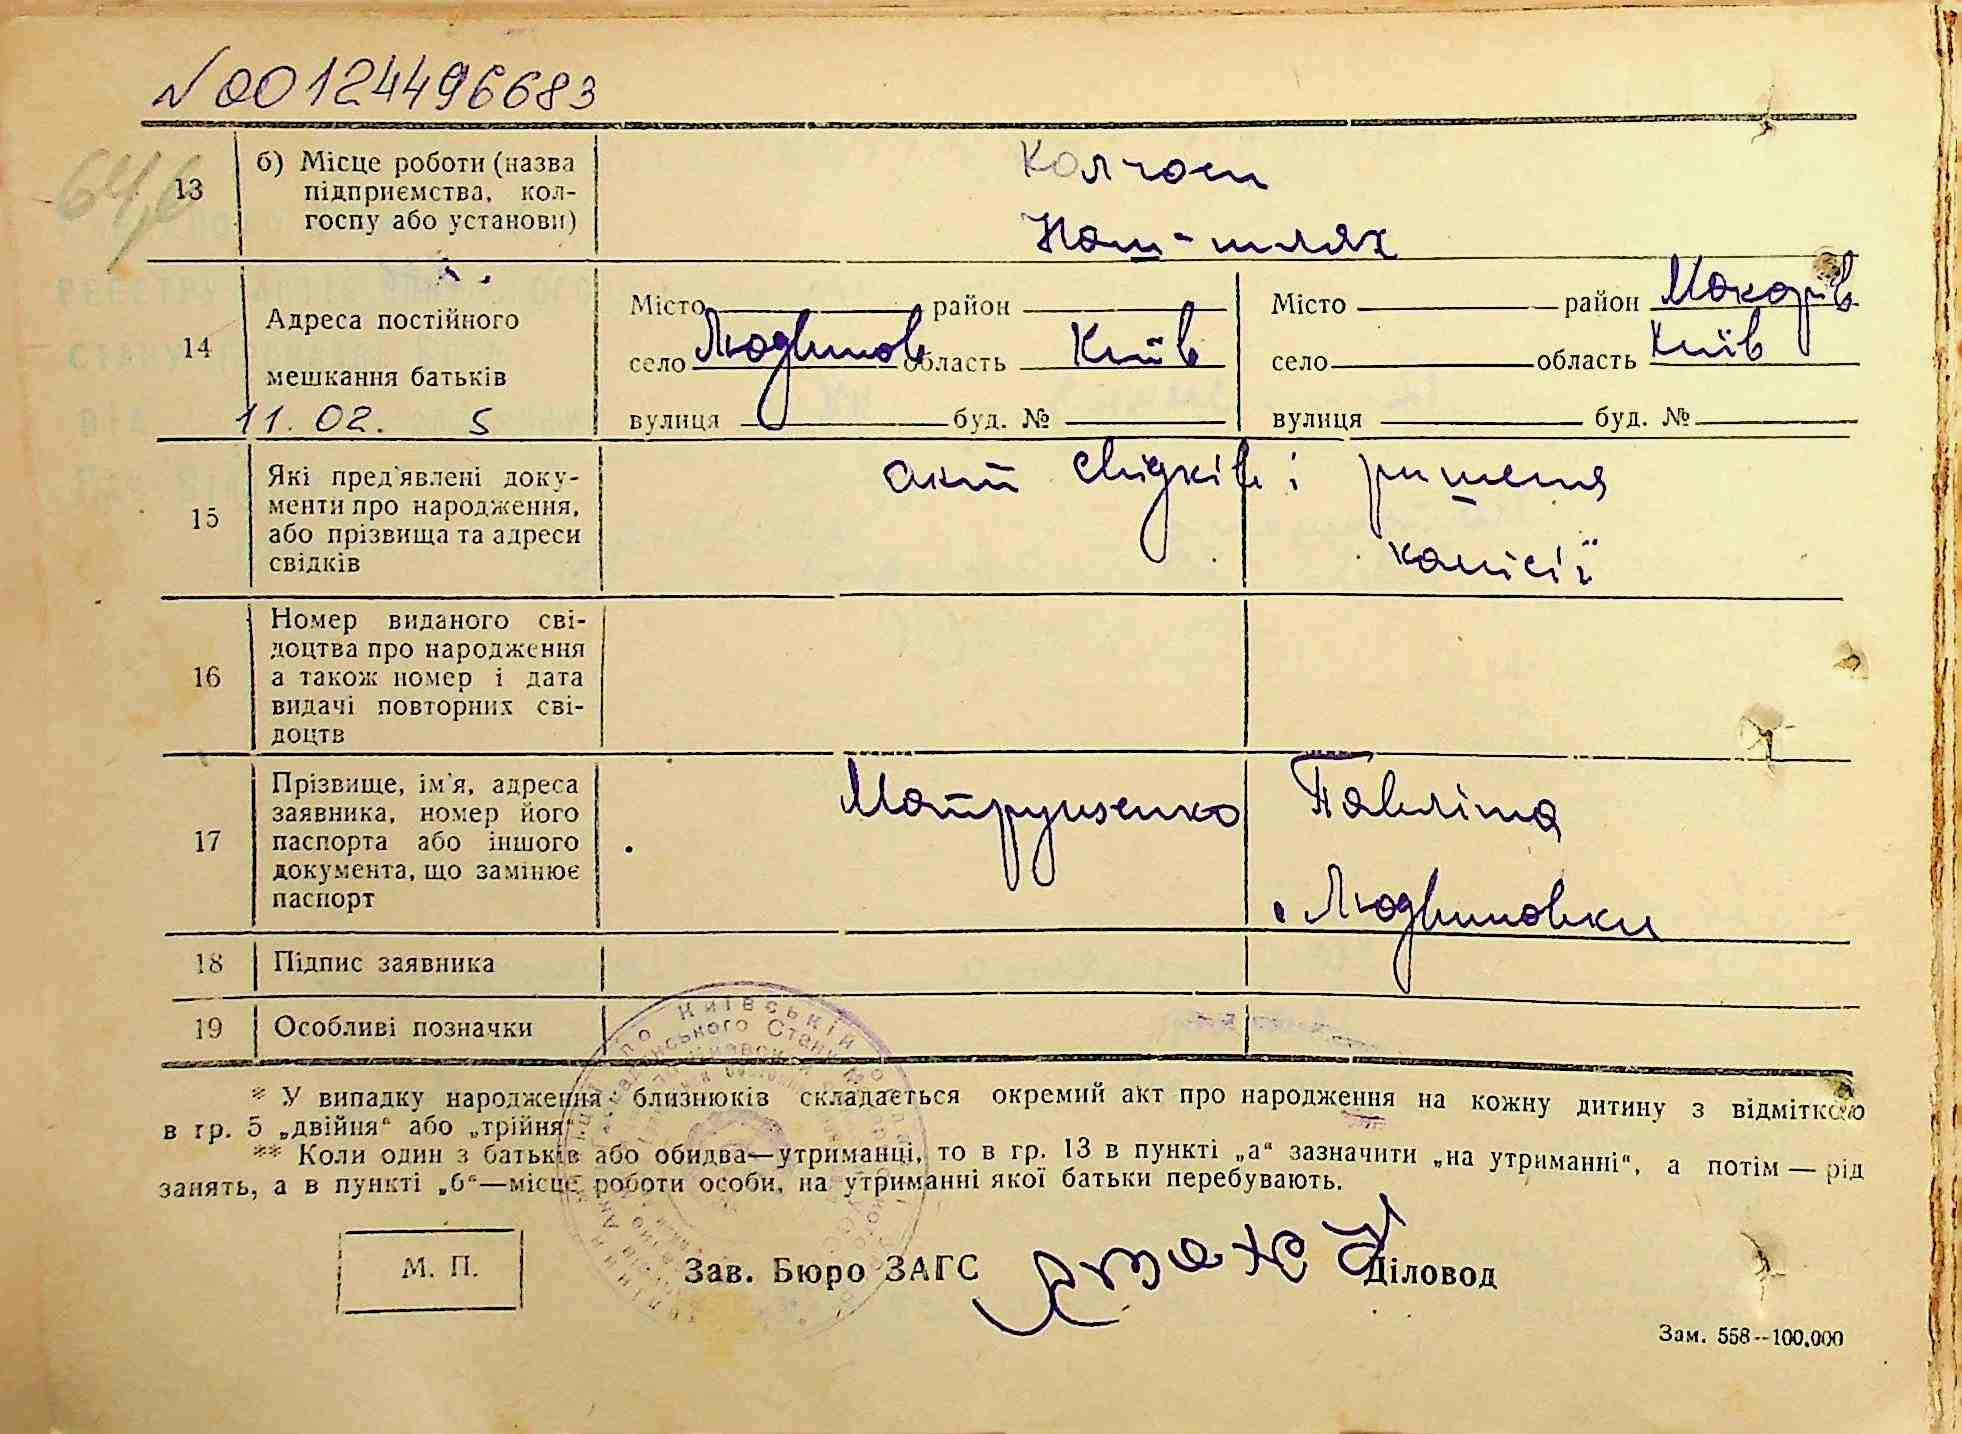 N 00124496683
64,6
13 б) Місце роботи (назва
підприємства, кол-
госпу або установи)
Колгосп
Наш-шлях
14 Адреса постійного
мешкання батьків
11.02. 5
Місто район
село Людвинов область Київ
вулиця буд. №
Місто район Макарів
село область Київ
вулиця буд. №
15 Які пред'явлені доку-
менти про народження,
або прізвища та адреси
свідків
акт свідків і ришення
комісії
16 Номер виданого сві-
доцтва про народження
а також номер і дата
видачі повторних сві-
доцтв
17 Прізвище, ім'я, адреса
заявника, номер його
паспорта або іншого
документа, що замінює
паспорт
Павліна
Людвиновки
18 Підпис заявника
19 Особливі позначки
* У випадку народження близнюків складається окремий акт про народження на кожну дитину з відміткою
в гр. 5 „двійня“ або „трійня“.
** Коли один з батьків або обидва—утриманці, то в гр. 13 в пункті „а“ зазначити „на утриманні“, а потім — рід
занять, а в пункті „б“—місце роботи особи, на утриманні якої батьки перебувають.
М. П.
Зав. Бюро ЗАГС
Діловод
Зам. 558--100.000